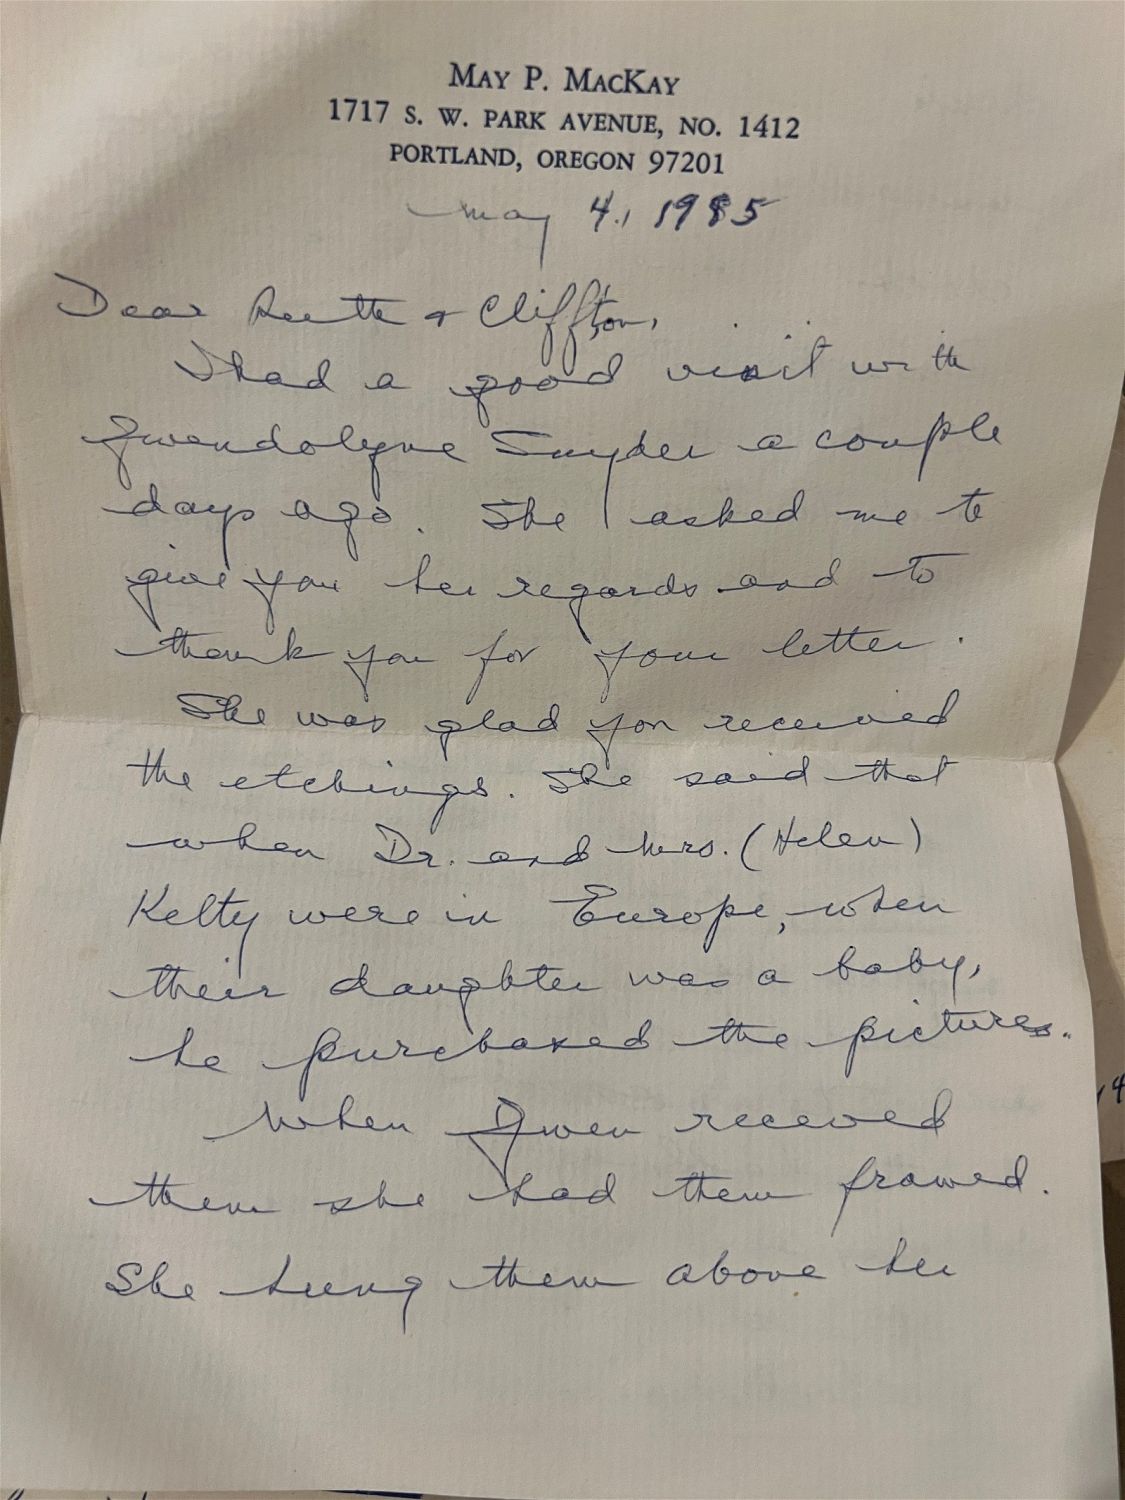 MAY P. MACKAY
1717 S. W. PARK AVENUE, NO. 1412
PORTLAND, OREGON 97201
May 4, 1985
Dear Ruth & Cliffton,
I had a good visit with
Gwendolyne Snyder a couple
days ago. She asked me to
give you her regards and to
thank you for your letter.
She was glad you received
the etchings. She said that
when Dr. and Mrs. (Helen)
Kelty were in Europe, when
their daughter was a baby,
he purchased the pictures.
When Gwen received
them she had them framed.
She hung them above her